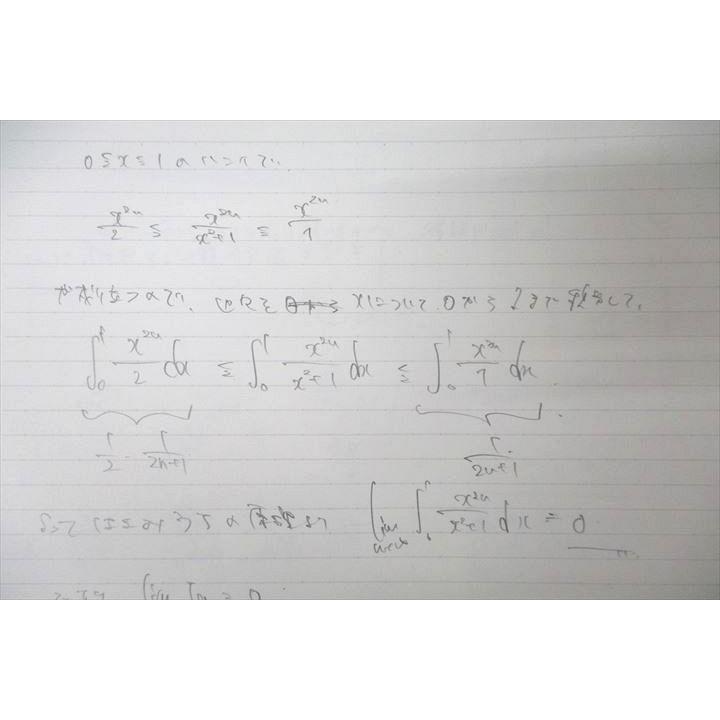 0≦x≦1のにおいて、
x^{2n}/2 ≦ x^{2n}/(x^2+1) ≦ x^{2n}/1
が成り立つので、辺々を xについて、0から1まで積分して、
∫_0^1 x^{2n}/2 dx ≦ ∫_0^1 x^{2n}/(x^2+1) dx ≦ ∫_0^1 x^{2n}/1 dx
1/2・1/(2n+1) 1/(2n+1)
よってはさみうちの原理より lim_{n→∞} ∫_0^1 x^{2n}/(x^2+1) dx = 0
lim I_n = 0